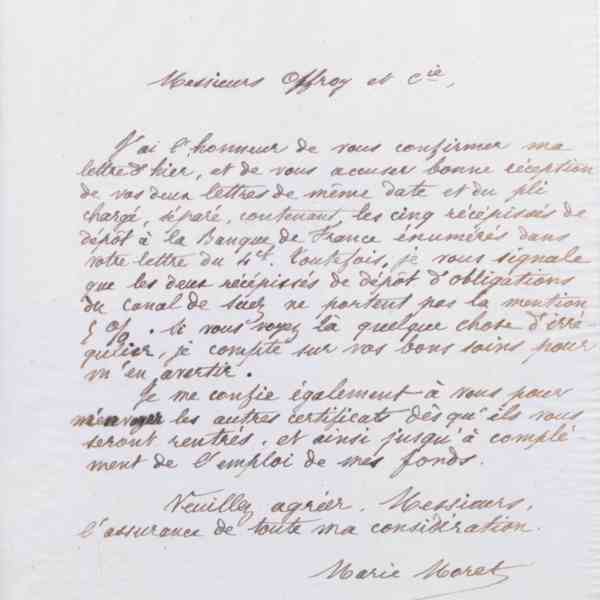 Messieurs Offroy et Cie,
J'ai l'honneur de vous confirmer ma
lettre d'hier, et de vous accuser bonne réception
de vos deux lettres de même date et du pli
chargé, séparé, contenant les cinq récépissés de
dépôt à la Banque de France énumérés dans
votre lettre du 4 ct. Toutefois, je vous signale
que les deux récépissés de dépôt d'obligations
du canal de Suez ne portent pas la mention
5 %. Si vous voyez là quelque chose d'irré
gulier, je compte sur vos bons soins pour
m'en avertir.
Je me confie également à vous pour
m'envoyer les autres certificats dès qu'ils vous
seront rentrés, et ainsi jusqu'à complé
ment de l'emploi de mes fonds.
Veuillez agréer, Messieurs,
l'assurance de toute ma considération.
Marie Moret